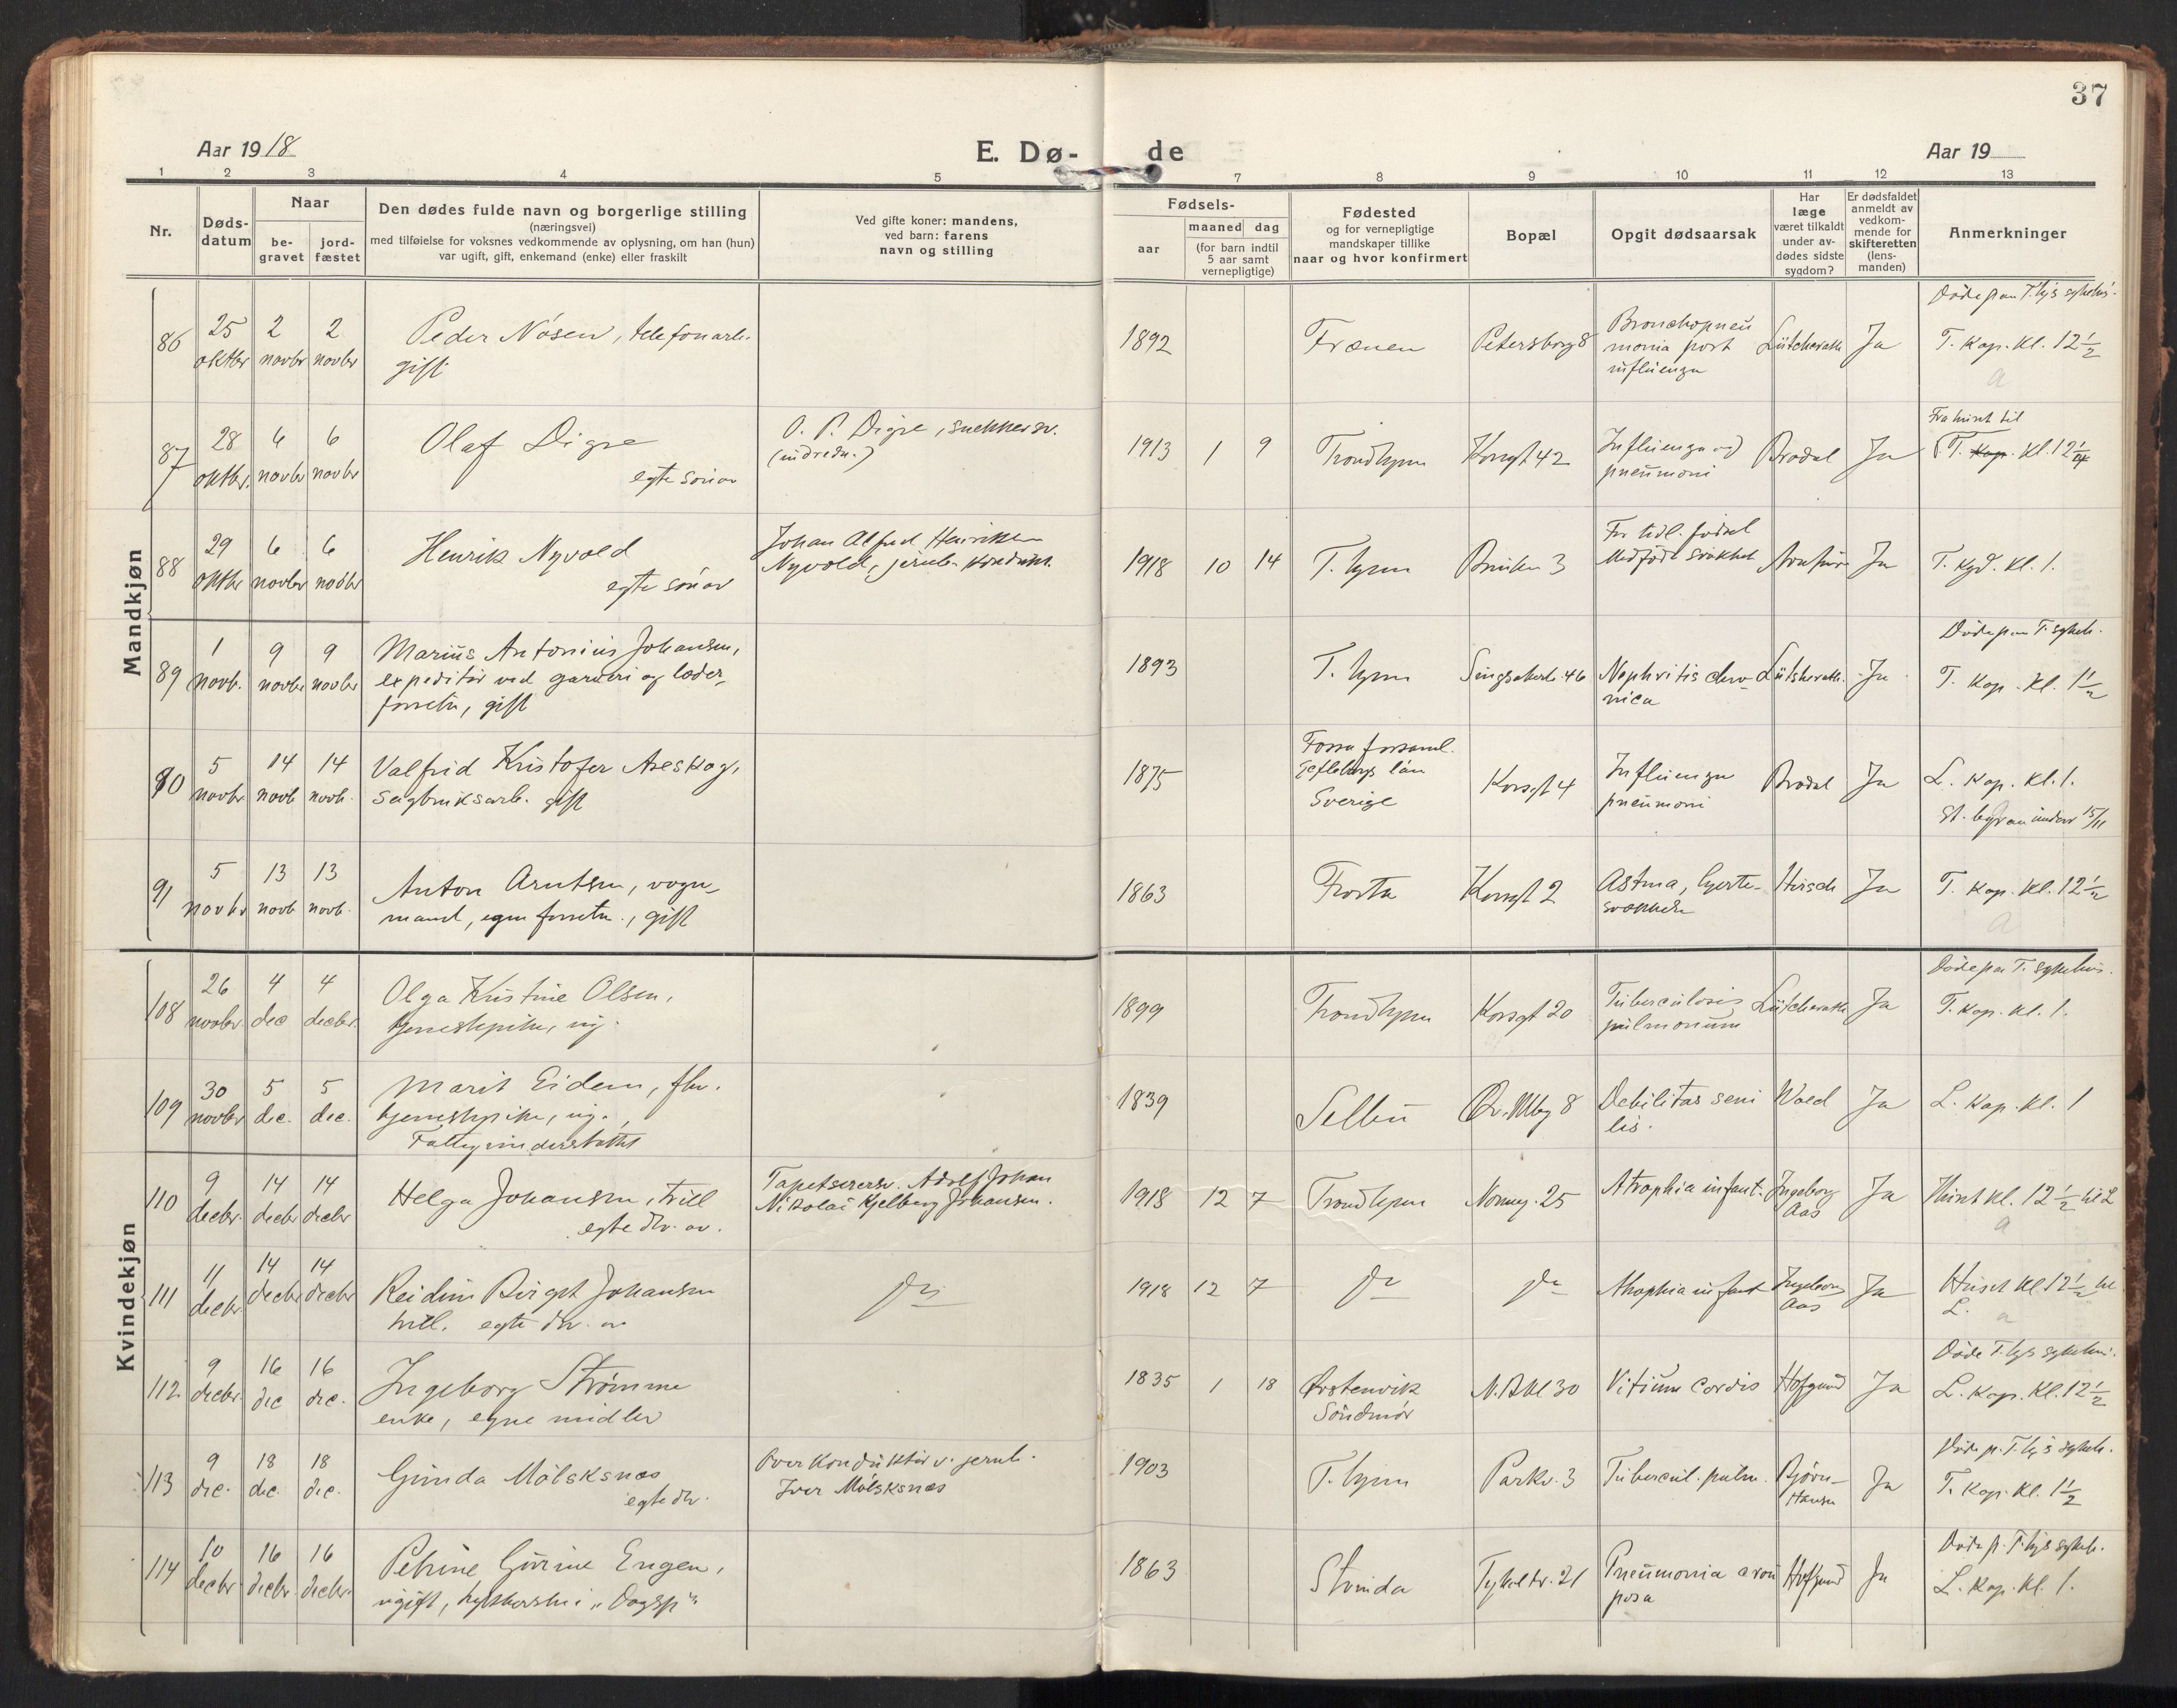 37
Aar 1918
E. Dø-
de
Aar 19
1 2 3 4 5 7 8 9 10 11 12 13
Nr.
Døds-
datum
Naar
be-
gravet
jord-
fæstet
Den dødes fulde navn og borgerlige stilling
(næringsvei)
med tilføielse for voksnes vedkommende av oplysning, om han (hun)
var ugift, gift, enkemand (enke) eller fraskilt
Ved gifte koner: mandens,
ved barn: farens
navn og stilling
Fødsels-
aar
maaned dag
(for barn indtil
5 aar samt
vernepligtige)
Fødested
og for vernepligtige
mandskaper tillike
naar og hvor konfirmert
Bopæl
Opgit dødsaarsak
Har
læge
været tilkaldt
under av-
dødes sidste
sygdom?
Er dødsfaldet
anmeldt av
vedkom-
mende for
skifteretten
(lens-
manden)
Anmerkninger
Mandkjøn
86
25 oktbr
2 novbr
2 novbr
Peder Nósen, telefonarb.
gift
1892
Frænen
Petersborg 8
Bronchopneu
monia post
influenza
Lütcherath
Ja
T. Kap. Kl. 12 1/2
87
28 oktbr.
6 novbr
6 novbr
Olaf Digre
egte søn av
O. P. Digre, snekkersv.
(indredn.)
1913 1 9
Trondhjem
Kongt 42
Influenza og
pneumoni
Brodal
Ja
Fra huset til
T. Kap. Kl. 12 1/4
88
29 oktbr
6 novbr
6 novbr
Henrik Nyvold
egte søn av
Johan Alfred Henriksen
Nyvold, jernb. kondukt.
1918 10 14
T.hjem
3
For tidl. fødsel
Medfødt svakhet
Ja
T. Kl. 1.
89
1 novb.
9 novbr
9 novbr
Marius Antonius Johansen,
expeditør ved garveri og læder-
forretn, gift
1893
T.hjem
Singsakerb. 46
Nephritis chro-
nica
Lütcherath.
Ja
Døde paa T. sykeh.
T. Kap. Kl. 1 1/2
90
5 novbr
14 novb
14 novb.
Valfrid Kristofer Aseskog,
sagbruksarb. gift
1875
forsaml.
Gefleborgs län
Sverige
Korsgt 4
Influenza
pneumoni
Brodal
Ja
L. Kap. Kl. 1.
15/11
91
5 novbr
13 novb
13 novb.
Anton Arntsen, vogn-
mand, egen forretn., gift
1863
Frosta
Korsgt 2
Astma, hjerte-
svækkelse
Hirsch
Ja
T. Kap. Kl. 12 1/2
Kvindekjøn
108
26 novbr
4 dec
4 decbr.
Olga Kristine Olsen,
tjenestepike, ug.
1899
Trondhjem
Korsgt 20
Tuberculosis
pulmonum
Lütcherath
Ja
Døde paa T. sykehus.
T. Kap. Kl. 1.
109
30 novbr
5 dec.
5 dec.
Marit Eidem, fhv.
tjenestepike, ug.
Fattigunderstøttet
1839
Selbu
Øv. Mbg 8
Debilitas seni
lis.
Wold
Ja
L. Kap. Kl. 1
110
9 decbr.
14 decbr
14 decbr
Helga Johansen, tvill
egte dtr. av.
Tapetserersv. Adolf Johan
Nikolai Kjelberg Johansen.
1918 12 7
Trondhjem
25
Atrophia infant.
Ingeborg
Aas
Ja
Huset kl. 12 1/2 til L
a
111
11 decbr
14 decbr
14 decbr
Reidun Birgit Johansen
tvil. egte dtr. av
do
1918 12 7
do
do
Atrophia infant
Ingeborg
Aas
Ja
Huset kl 12 1/2 til
L.
a
112
9 decbr.
16 dec
16 dec.
Ingeborg Strømme
enke, egne midler
1835 1 18
Ørstenvik
Söndmör
N. Bkl 30
Vitium cordis
Hofgaard
Ja
Døde T.hjs sykehus.
L. Kap. Kl. 12 1/2
113
9 dec.
18 dec.
18 dec.
Gunda Mólsksnæs
egte dtr.
Overkonduktør v. jernb.
Iver Mólsksnæs
1903
T.hjem
Parkv. 3
Tubercul. pulm.
Bjørn-
Hansen
Ja
Døde p. T.hjs sykeh.
T. Kap. Kl. 1 1/2
114
10 decbr
16 decbr.
16 decbr.
Petrine Gurine Engen,
ugift, i "Dagsp"
1863
Strinda
21
Pneumonia crou
posa
Hofgaard
Ja
Døde p. T.hjs sykeh.
L. Kap. Kl. 1.